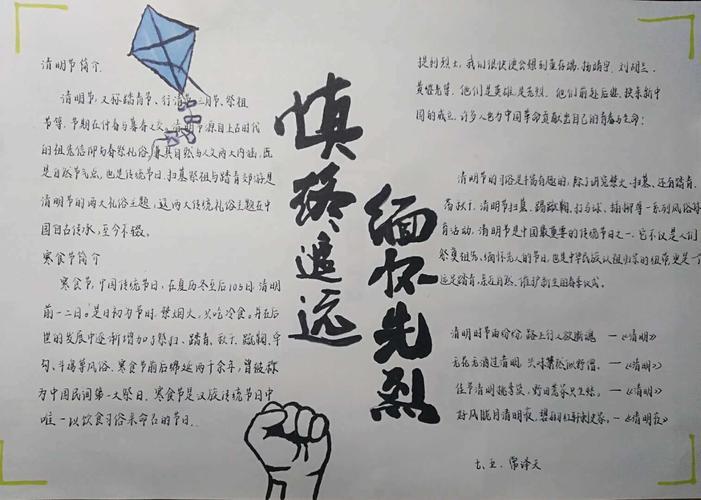 清明节简介
清明节，又称踏青节、行清节、三月节、祭祖
节等，节期在仲春与暮春之交。清明节源自上古时代
的祖先信仰与春祭礼俗，兼具自然与人文两大内涵，既
是自然节气点，也是传统节日，扫墓祭祖与踏青郊游是
清明节的两大礼俗主题，这两大传统礼俗主题在中
国自古传承，至今不辍。
寒食节简介
寒食节，中国传统节日，在夏历冬至后105日，清明
前一二日。是日初为节时，禁烟火，只吃冷食。并在后
世的发展中逐渐增加了祭扫、踏青、秋千、蹴鞠、牵
勾、斗鸡等风俗，寒食节前后绵延两千余年，曾被称
为中国民间第一大祭日。寒食节是汉族传统节日中
唯一以饮食习俗来命名的节日。
慎终追远
缅怀先烈
提到烈士，我们很快便会想到董存瑞、杨靖宇、刘胡兰、
黄继光等，他们是英雄，是先烈。他们前赴后继，换来新中
国的成立，许多人也为中国革命贡献出自己的青春与生命！
清明节的习俗是丰富有趣的，除了讲究禁火、扫墓，还有踏青、
荡秋千、清明节扫墓、踢蹴鞠、打马球、插柳等一系列风俗体
育活动。清明节是中国最重要的传统节日之一，它不仅是人们
祭奠祖先、缅怀先人的节日，也是中华民族认祖归宗的纽带，更是一
远足踏青、亲近自然、催护新生的春季仪式。
清明时节雨纷纷，路上行人欲断魂 —《清明》
无花无酒过清明，兴味萧然似野僧。—《清明》
佳节清明桃李笑，野田荒冢只生愁。—《清明》
好风胧月清明夜，碧砌红轩刺史家。—《清明夜》
七、五、常泽天